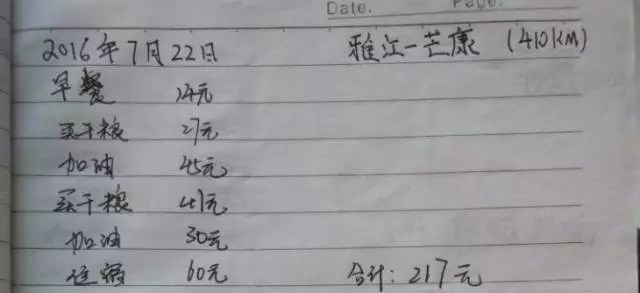 Date. Page.
2016年7月22日 雅江-芒康 (410KM)
早餐 14元
买干粮 27元
加油 45元
买干粮 41元
加油 30元
住宿 60元 合计: 217元